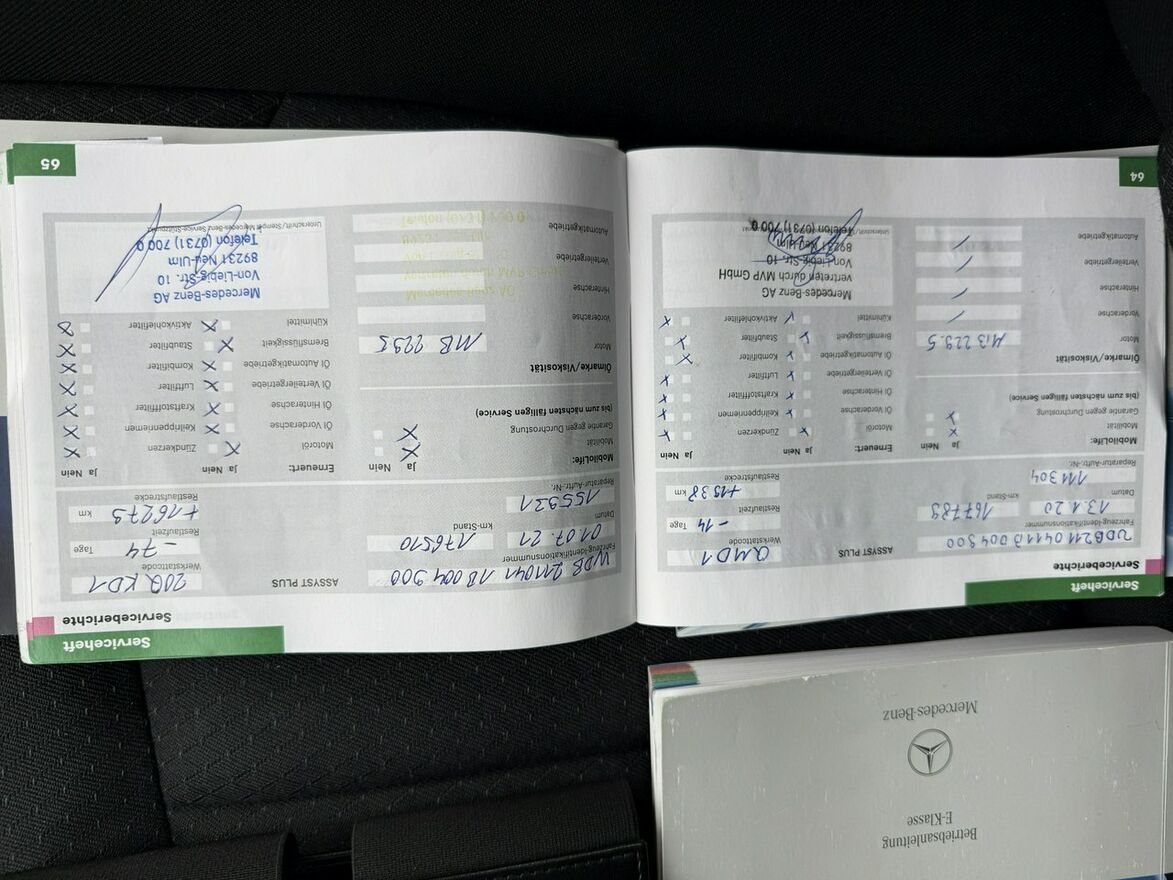 Betriebsanleitung
E-Klasse
Mercedes-Benz
Serviceheft
Serviceberichte
WDB2110411B004900
Fahrzeug-Identifikationsnummer
ASSYST PLUS
13.1.20
Datum
167789
km-Stand
111304
Reparatur-Auftr.-Nr.
Werkstattcode
-14 Tage
Restlaufzeit
+1538 km
Restlaufstrecke
MobiloLife:
Ja Nein
Mobilität
Garantie gegen Durchrostung
(bis zum nächsten fälligen Service)
Ölmarke/Viskosität
Motor
MB 229.5
Vorderachse
Hinterachse
Verteilergetriebe
Automatikgetriebe
Erneuert:
Ja Nein
Ja Nein
Motoröl
Zündkerzen
Öl Vorderachse
Keilrippenriemen
Öl Hinterachse
Kraftstofffilter
Öl Verteilergetriebe
Luftfilter
Öl Automatikgetriebe
Kombifilter
Bremsflüssigkeit
Staubfilter
Kühlmittel
Aktivkohlefilter
Mercedes-Benz AG
vertreten durch MVP GmbH
Von-Liebig-Str. 10
89231 Neu-Ulm
Telefon (0731) 700 0
64
Serviceheft
Serviceberichte
WDB 211041 1B004900
Fahrzeug-Identifikationsnummer
ASSYST PLUS
01.07.21
Datum
176510
km-Stand
155931
Reparatur-Auftr.-Nr.
Werkstattcode
-74 Tage
Restlaufzeit
+16279 km
Restlaufstrecke
MobiloLife:
Ja Nein
Mobilität
Garantie gegen Durchrostung
(bis zum nächsten fälligen Service)
Ölmarke/Viskosität
Motor
MB 229.5
Vorderachse
Hinterachse
Verteilergetriebe
Automatikgetriebe
Erneuert:
Ja Nein
Ja Nein
Motoröl
Zündkerzen
Öl Vorderachse
Keilrippenriemen
Öl Hinterachse
Kraftstofffilter
Öl Verteilergetriebe
Luftfilter
Öl Automatikgetriebe
Kombifilter
Bremsflüssigkeit
Staubfilter
Kühlmittel
Aktivkohlefilter
Mercedes-Benz AG
Von-Liebig-Str. 10
89231 Neu-Ulm
Telefon (0731) 700 0
Unterschrift/Stempel Mercedes-Benz-Service-Stützpunkt
65